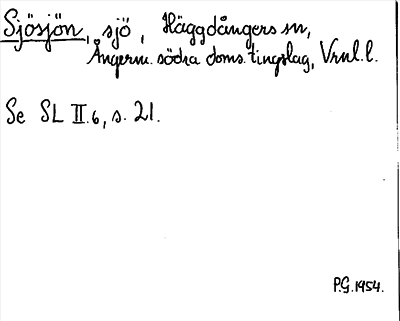 Sjösjön, sjö, Häggdångers sn,
Ångerm. södra doms. tingslag, Vrnl.l.
Se SL II.6, s. 21.
P.G. 1954.